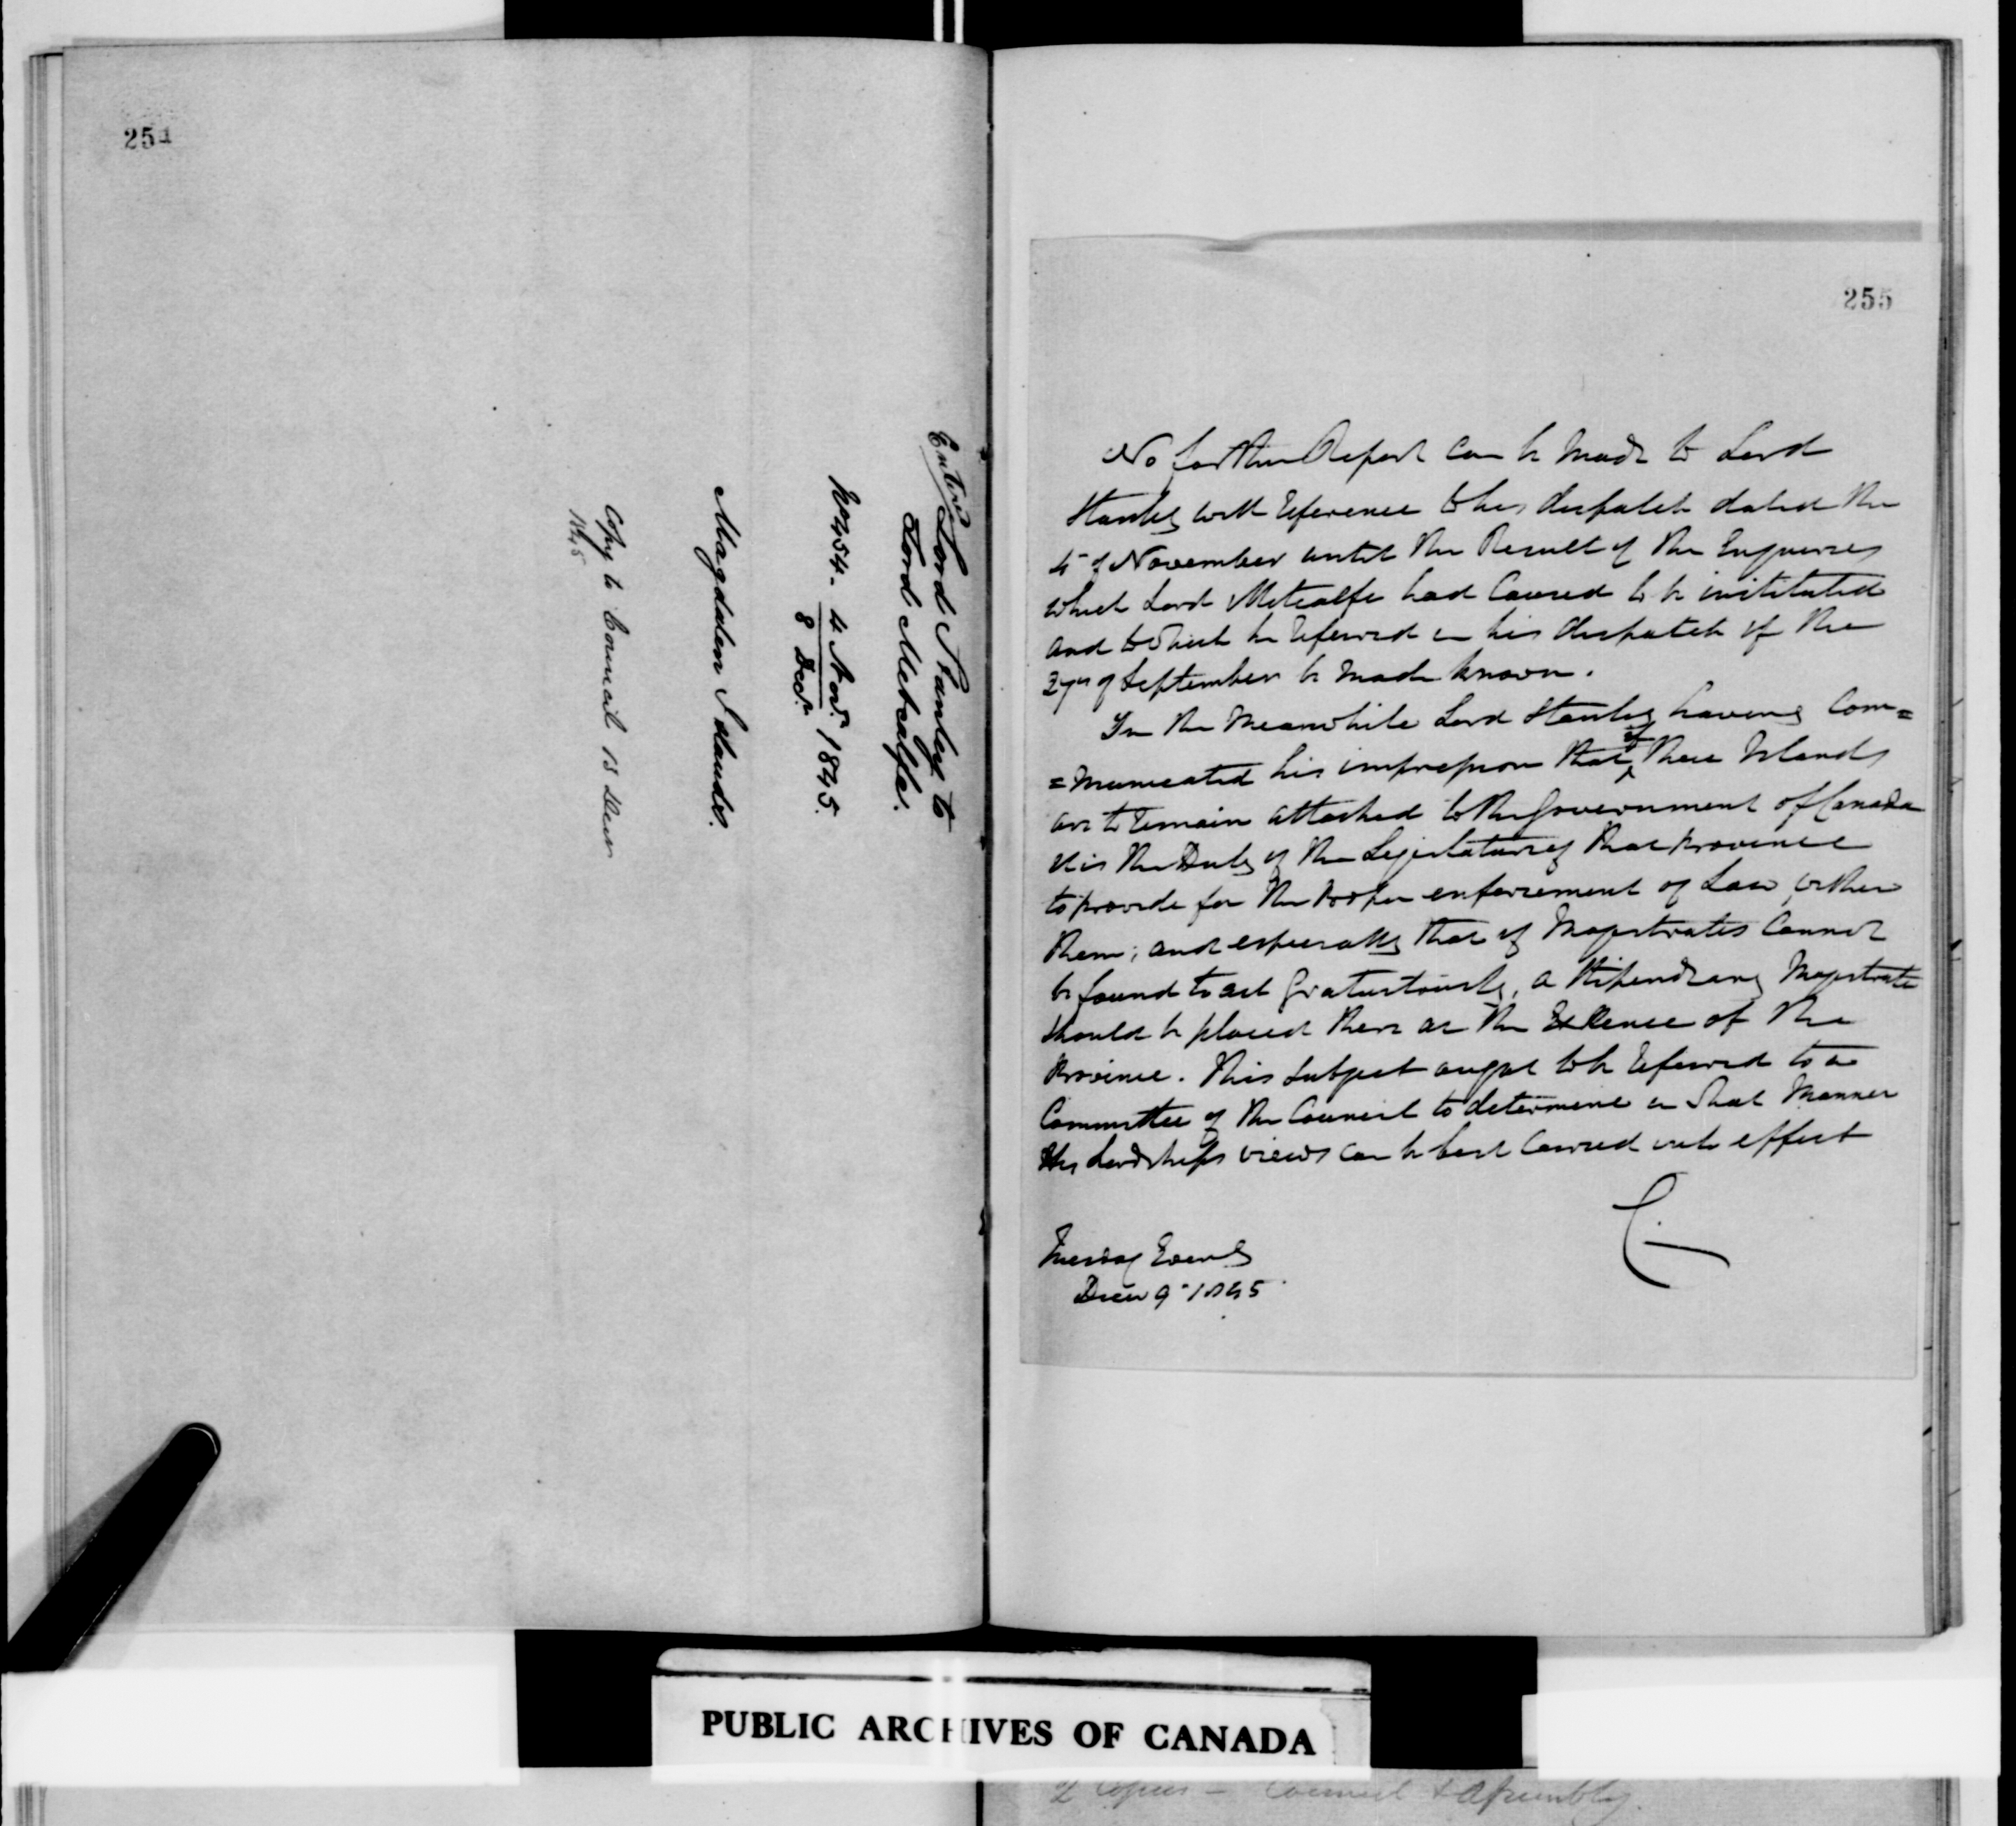 254
Enter'd
Lord Stanley to
Lord Metcalfe.
No 454. 4 Nov. 1845.
8 Decr.
Magdalen Islands.
Copy to Council 13 Decr
1845
255
No further Report can be made to Lord
Stanley with reference to his dispatch dated the
4th of November until the Result of the Inquiries
which Lord Metcalfe had Caused to be instituted
and to which he referred in his dispatch of the
27th of September be made known.
In the Meanwhile Lord Stanley having Com=
=municated his impression that if these Islands
are to remain attached to the Government of Canada
it is the Duty of the Legislature of that Province
to provide for the proper enforcement of Law within
them; and especially that if Magistrates Cannot
be found to act Gratuitously, a Stipendiary Magistrate
should be placed there at the Expence of the
Province. This Subject ought to be referred to a
Committee of the Council to determine in what Manner
His Lordships views can be best Carried into effect
C.
Tuesday Evening
Decr 9th 1845
PUBLIC ARCHIVES OF CANADA
2 Copies - Council & Assembly.